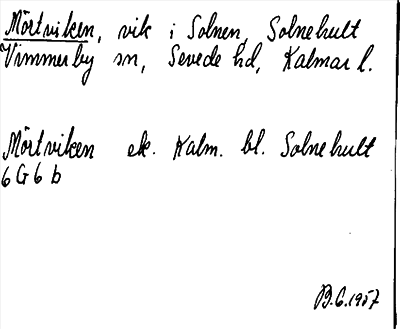 Mörtviken, vik i Solnen, Solnehult
Vimmerby sn, Sevede hd, Kalmar l.
Mörtviken ek. Kalm. bl. Solnehult
6 G 6 b
B.G. 1957